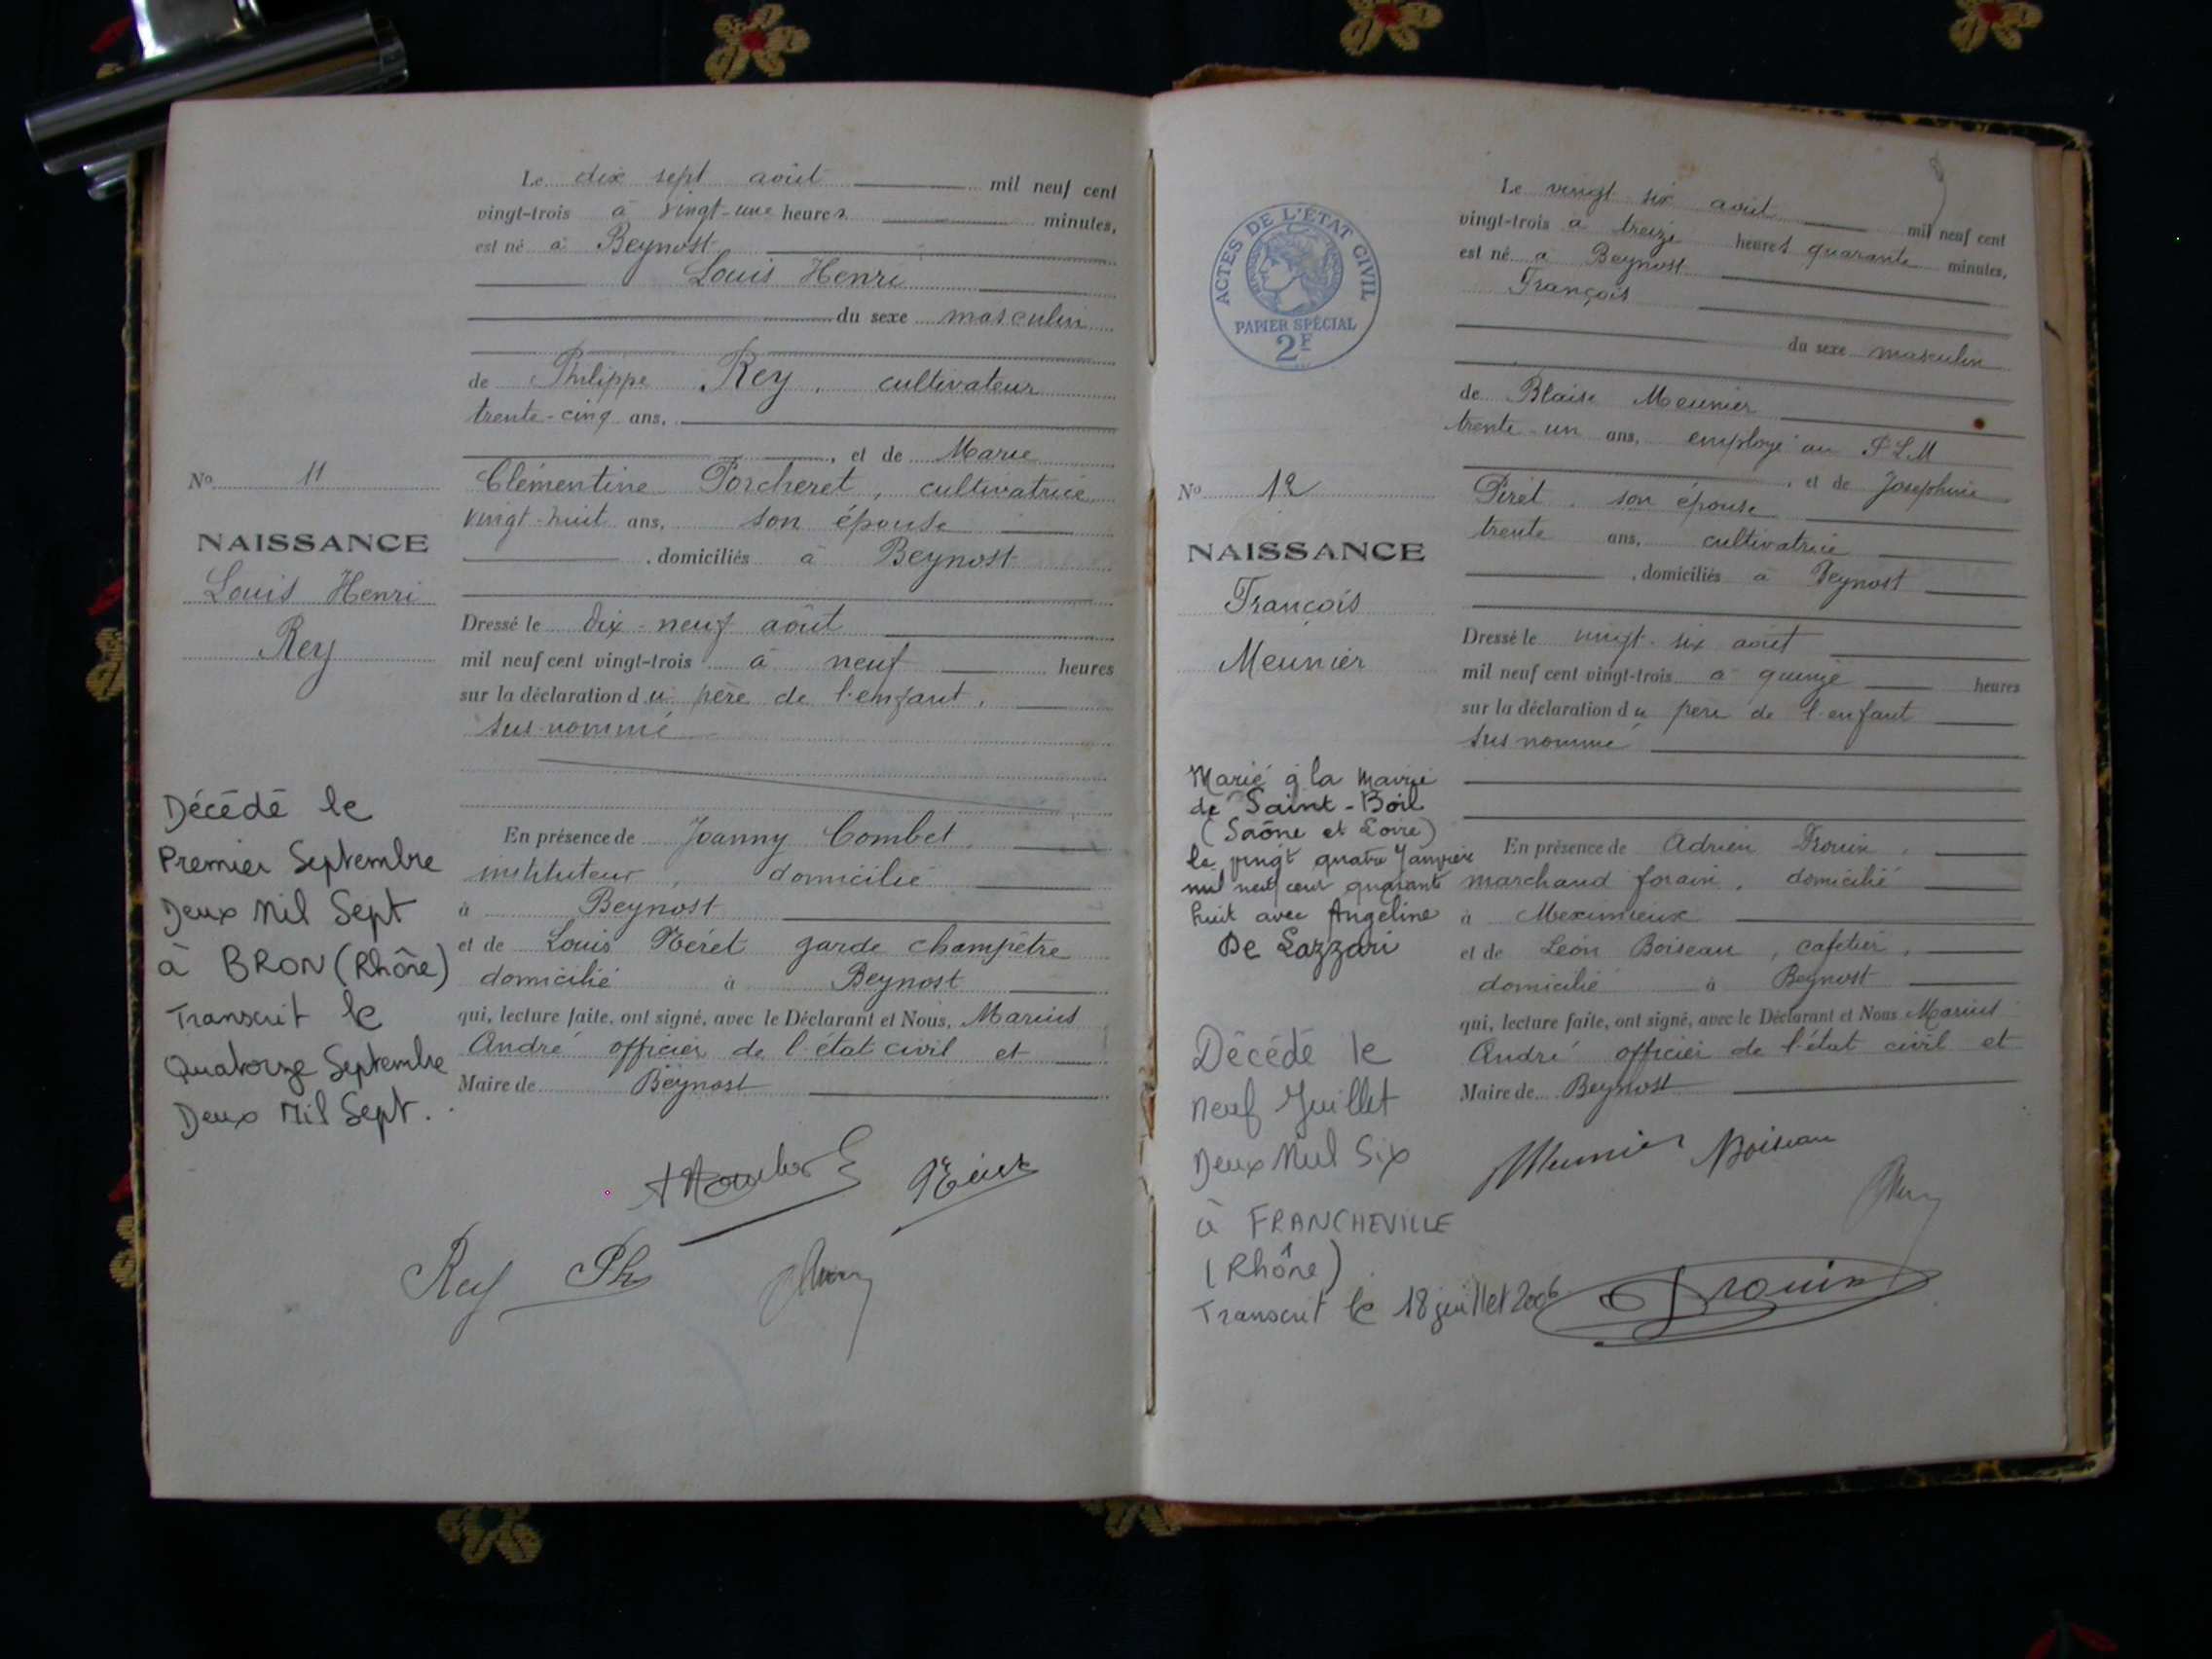 Le dix sept août mil neuf cent
vingt-trois à vingt-une heures minutes,
est né à Beynost
Louis Henri
du sexe masculin
de Philippe Rey, cultivateur
trente-cinq ans,
, et de Marie
Clémentine Porcheret, cultivatrice
vingt-huit ans, son épouse
, domiciliés à Beynost
Dressé le dix-neuf août
mil neuf cent vingt-trois à neuf heures
sur la déclaration du père de l'enfant,
sus-nommé
En présence de Joanny Combet,
instituteur, domicilié
à Beynost
et de Louis garde champêtre
domicilié à Beynost
qui, lecture faite, ont signé, avec le Déclarant et Nous, Marius
André officier de l'état civil et
Maire de Beynost
Rey Ph
No 11
NAISSANCE
Louis Henri
Rey
Décédé le
Premier Septembre
Deux Mil Sept
à BRON (Rhône)
Transcrit le
Quatorze Septembre
Deux Mil Sept.
ACTES DE L'ÉTAT CIVIL
PAPIER SPÉCIAL
2F
Le vingt six août mil neuf cent
vingt-trois à treize heures quarante minutes,
est né à Beynost
François
du sexe masculin
de Blaise Meunier
trente-un ans, employé au PLM
, et de Josephine
Piret, son épouse
trente ans, cultivatrice
, domiciliés à Beynost
Dressé le vingt-six août
mil neuf cent vingt-trois à quinze heures
sur la déclaration du père de l'enfant
sus nommé
En présence de Adrien Drouin,
marchand forain, domicilié
à Meximieux
et de Léon Boiseau, cafetier,
domicilié à Beynost
qui, lecture faite, ont signé, avec le Déclarant et Nous Marius
André officier de l'état civil et
Maire de Beynost
Meunier Boiseau
Drouin
No 12
NAISSANCE
François
Meunier
Marié à la Mairie
de Saint-Boil
(Saône et Loire)
le vingt quatre Janvier
mil neuf cent quarante
huit avec Angeline
De Lazzari
Décédé le
neuf Juillet
Deux Mil Six
à FRANCHEVILLE
(Rhône)
Transcrit le 18 juillet 2006